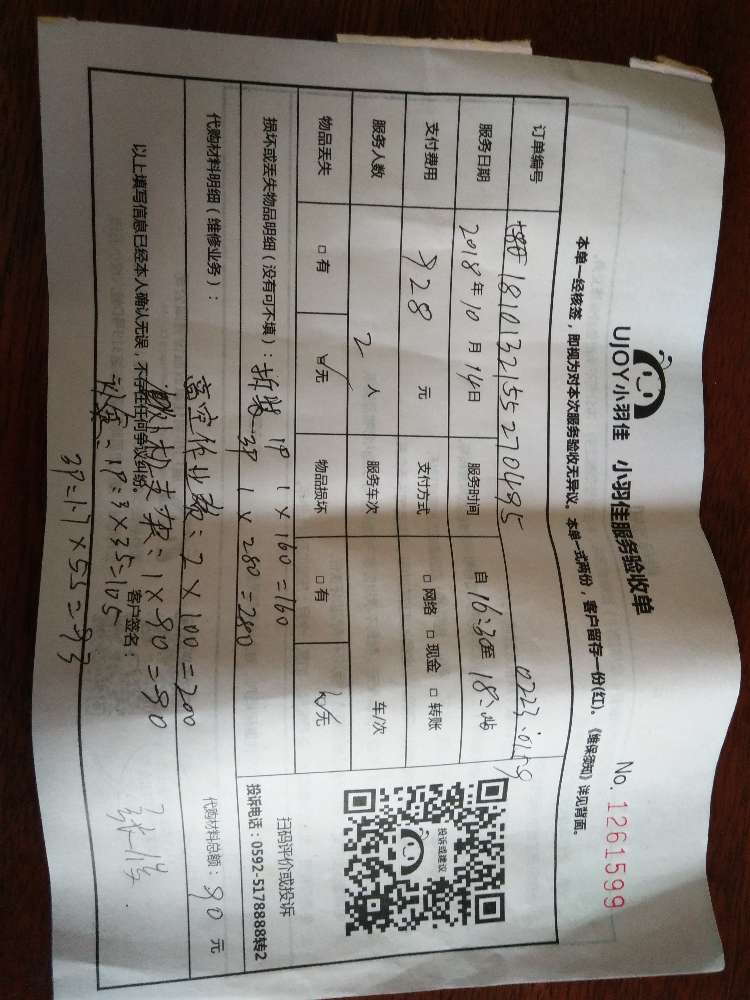 UJOY小羽佳 小羽佳服务验收单
No. 1261599
本单一经核签，即视为对本次服务验收无异议。本单一式两份，客户留存一份(红)。《维保须知》详见背面。
订单编号 18101321552270495
服务日期 2018年10月14日 服务时间 自16:30至18:
支付费用 928元 支付方式 □网络 □现金 □转账
服务人数 2人 服务车次 车/次
物品丢失 □有 □无 物品损坏 □有 □无
投诉或建议
扫码评价或投诉
投诉电话：0592-5178888转2
损坏或丢失物品明细（没有可不填）：拆装 1P 1×160=160
3P 1×280=280
代购材料明细（维修业务）： 代购材料总额：90元
高空作业费：2×100=200
支架：1×90=90
以上填写信息已经本人确认无误，不存在任何争议纠纷。 客户签名：
1P=3×35=105
3P=1.7×55=93